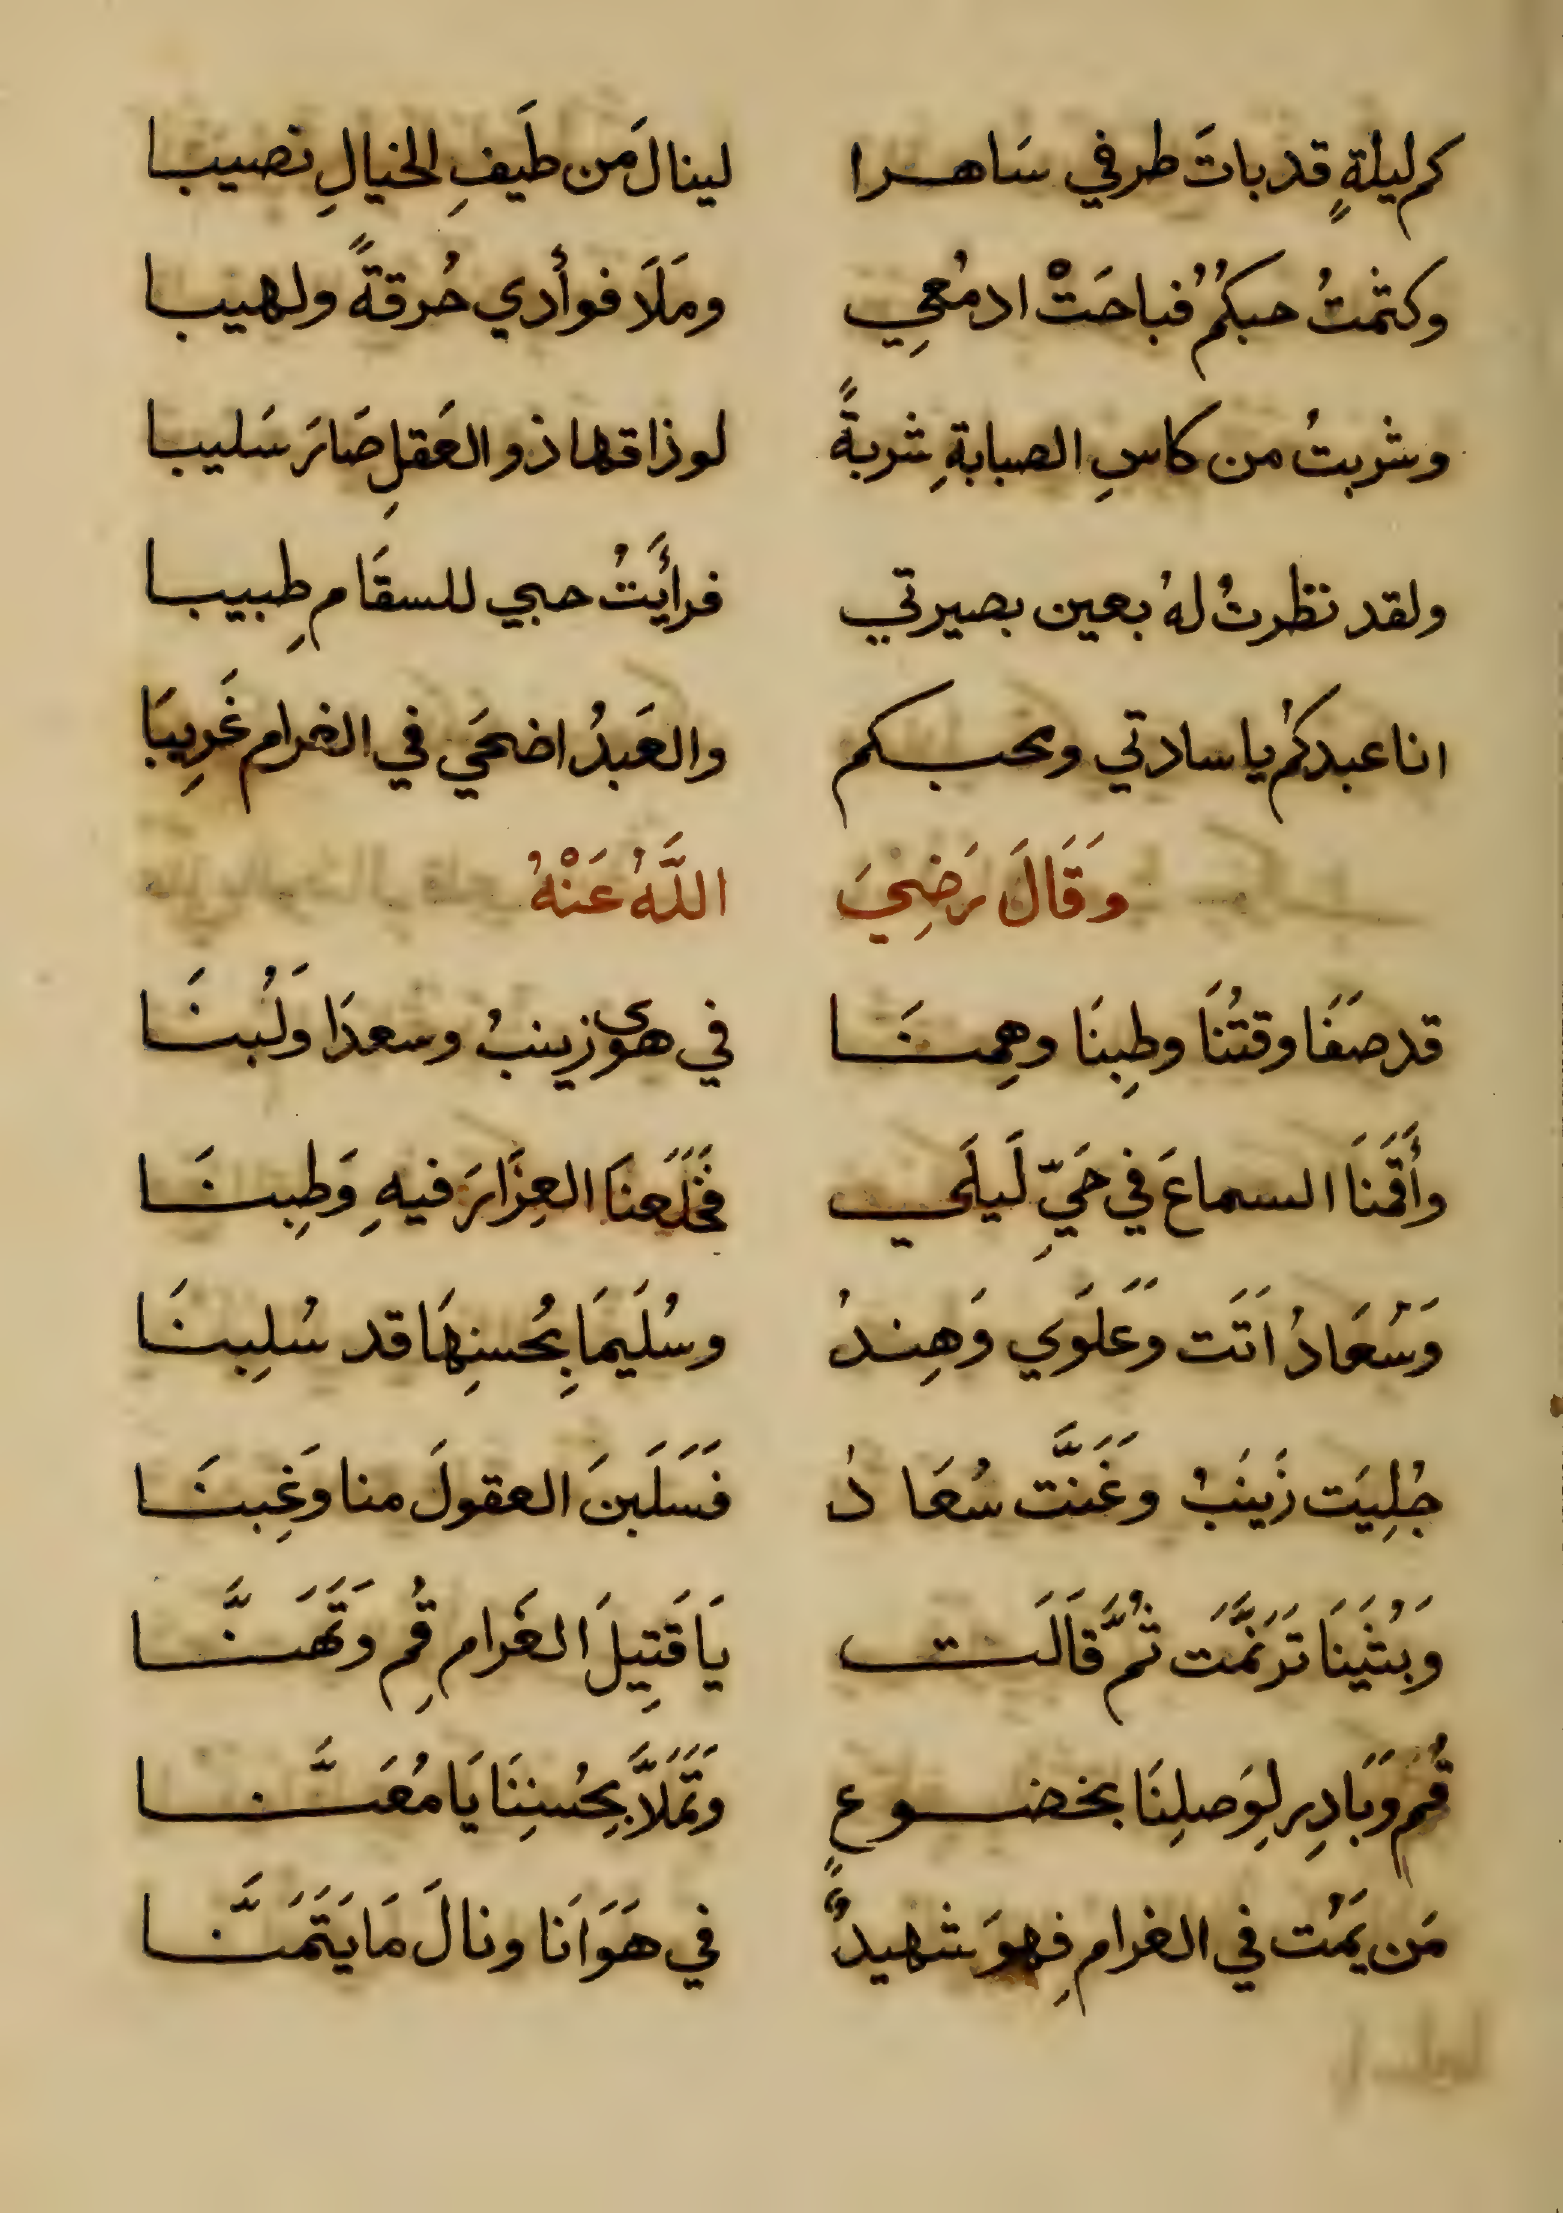 كم ليلةٍ قد باتَ طرفي سَاهرا لينالَ من طيَفِ الخيالِ نصيبا
وكتمتُ حبكمُ فباحَتْ ادمُعِي ومَلَا فوأدي حُرقةً ولهيبا
وشربتُ من كاسِ الصبابةِ شربةً لو ذاقها ذو العَقلِ صَارَ سَليبا
ولقد نظرتُ لهُ بعين بصيرتي فرأيَتُ حبي للسقَام طِبيبا
انا عبدكمُ يا سادتي ومحبكم والعَبدُ اضحَي في الغرام غَرِيبَا
وَقَالَ رَضِيَ اللَّهُ عَنْهُ
قد صَفَا وقتُنَا وطِبنَا وهِمنَا في هوى زينبُ وسعدَا وَلُبنَا
وأَقَمنَا السماعَ في حَيِّ لَيلَي فخَلَعنَا العِزَارَ فيهِ وَطِبنَا
وَسُعَادُ اتَت وَعَلوَي وَهِندُ وسُلَيمَا بِحُسنِهَا قد سُلِبنَا
جُلِيَت زَينَبُ وَغَنَّت سُعَادُ فَسَلَبنَ العقولَ منا وَغِبنَا
وَبُثَينَا تَرَنَّمَت ثُمَّ قَالَت يَا قَتِيلَ الغَرام قُم وَتَهَنَّا
قُم وَبَادِر لِوَصلِنَا بخضوعٍ وَتَمَلَّا بِحُسنِنَا يَا مُعَنَّا
مَن يَمُت في الغرام فهوَ شهيدٌ في هَوَانَا ونالَ مَا يَتَمَنَّا